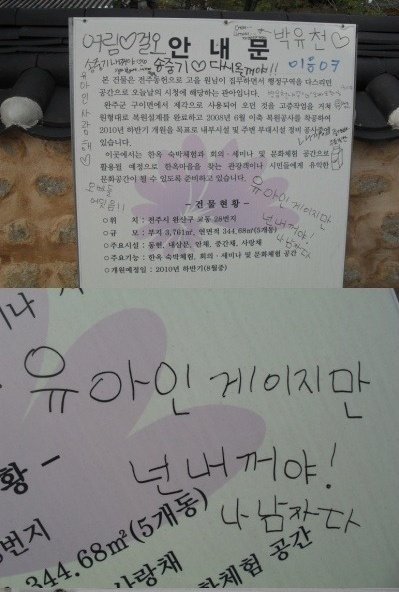 여림♡걸오
안 내 문
박유천♡
송중기♡
다시옴꺼야!!
믹유07
유아인사랑해♡
본 건물은 전주동헌으로 고을 원님이 집무하면서 행정구역을 다스리던
공간으로 오늘날의 시청에 해당하는 관아입니다.
완주군 구이면에서 제각으로 사용되어 오던 것을 고증작업을 거쳐
원형대로 복원설계를 완료하고 2008년 6월 이축 복원공사를 착공하여
2010년 하반기 개원을 목표로 내부시설 및 주변 부대시설 정비 공사를
있습니다.
이곳에서는 한옥 숙박체험과 회의 · 세미나 및 문화체험 공간으로
활용될 예정으로 한옥마을을 찾는 관광객이나 시민들에게 유익한
문화공간이 될 수 있도록 준비하고 있습니다.
유아인 게이지만
넌 내꺼야!
나 남자다
- 건물현황 -
○ 위 치 : 전주시 완산구 교동 28번지
○ 규 모 : 부지 3,761㎡, 연면적 344.68㎡(5개동)
○ 주요시설 : 동헌, 내삼문, 안채, 중간채, 사랑채
○ 주요기능 : 한옥 숙박체험, 회의 · 세미나 및 문화체험 공간
○ 개원예정일 : 2010년 하반기(8월중)
유아인 게이지만
넌 내꺼야!
나 남자다
황 -
번지
344.68㎡(5개동)
사랑채
화체험 공간